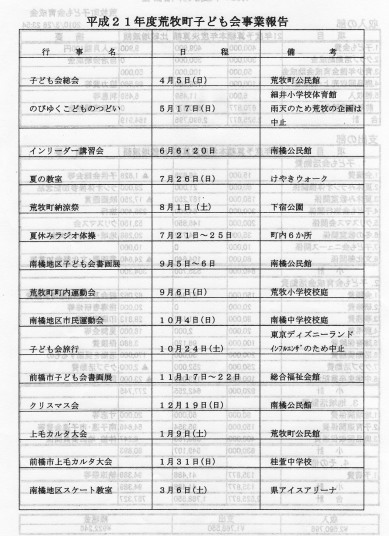 平成２１年度荒牧町子ども会事業報告
行　事　名　日　程　備　考
子ども会総会　４月５日(日)　荒牧町公民館
細井小学校体育館
のびゆくこどものつどい　５月１７日(日)　雨天のため荒牧の企画は
中止
インリーダー講習会　６月６・２０日　南橘公民館
夏の教室　７月２６日(日)　けやきウォーク
荒牧町納涼祭　８月１日（土）　下宿公園
夏休みラジオ体操　７月２１日～２５日　町内６か所
南橘地区子ども会書画展　９月５日～６日　南橘公民館
荒牧町町内運動会　９月６日(日)　荒牧小学校校庭
南橘地区市民運動会　１０月４日(日)　南橘中学校校庭
東京ディズニーランド
子ども会旅行　１０月２４日(土)　ｲﾝﾌﾙｴﾝｻﾞのため中止
前橋市子ども会書画展　１１月１７日～２２日　総合福祉会館
クリスマス会　１２月１９日(日)　南橘公民館
上毛カルタ大会　１月９日(土)　荒牧町公民館
前橋市上毛カルタ大会　１月３１日(日)　桂萱中学校
南橘地区スケート教室　３月６日(土)　県アイスアリーナ